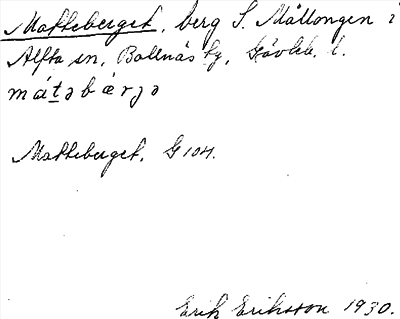 Matteberget, berg S. Mållongen i
Alfta sn, Bollnäs tg, Gävleb. l.
mát̲əbærjə
Matteberget. G 104.
Erik Eriksson 1930.